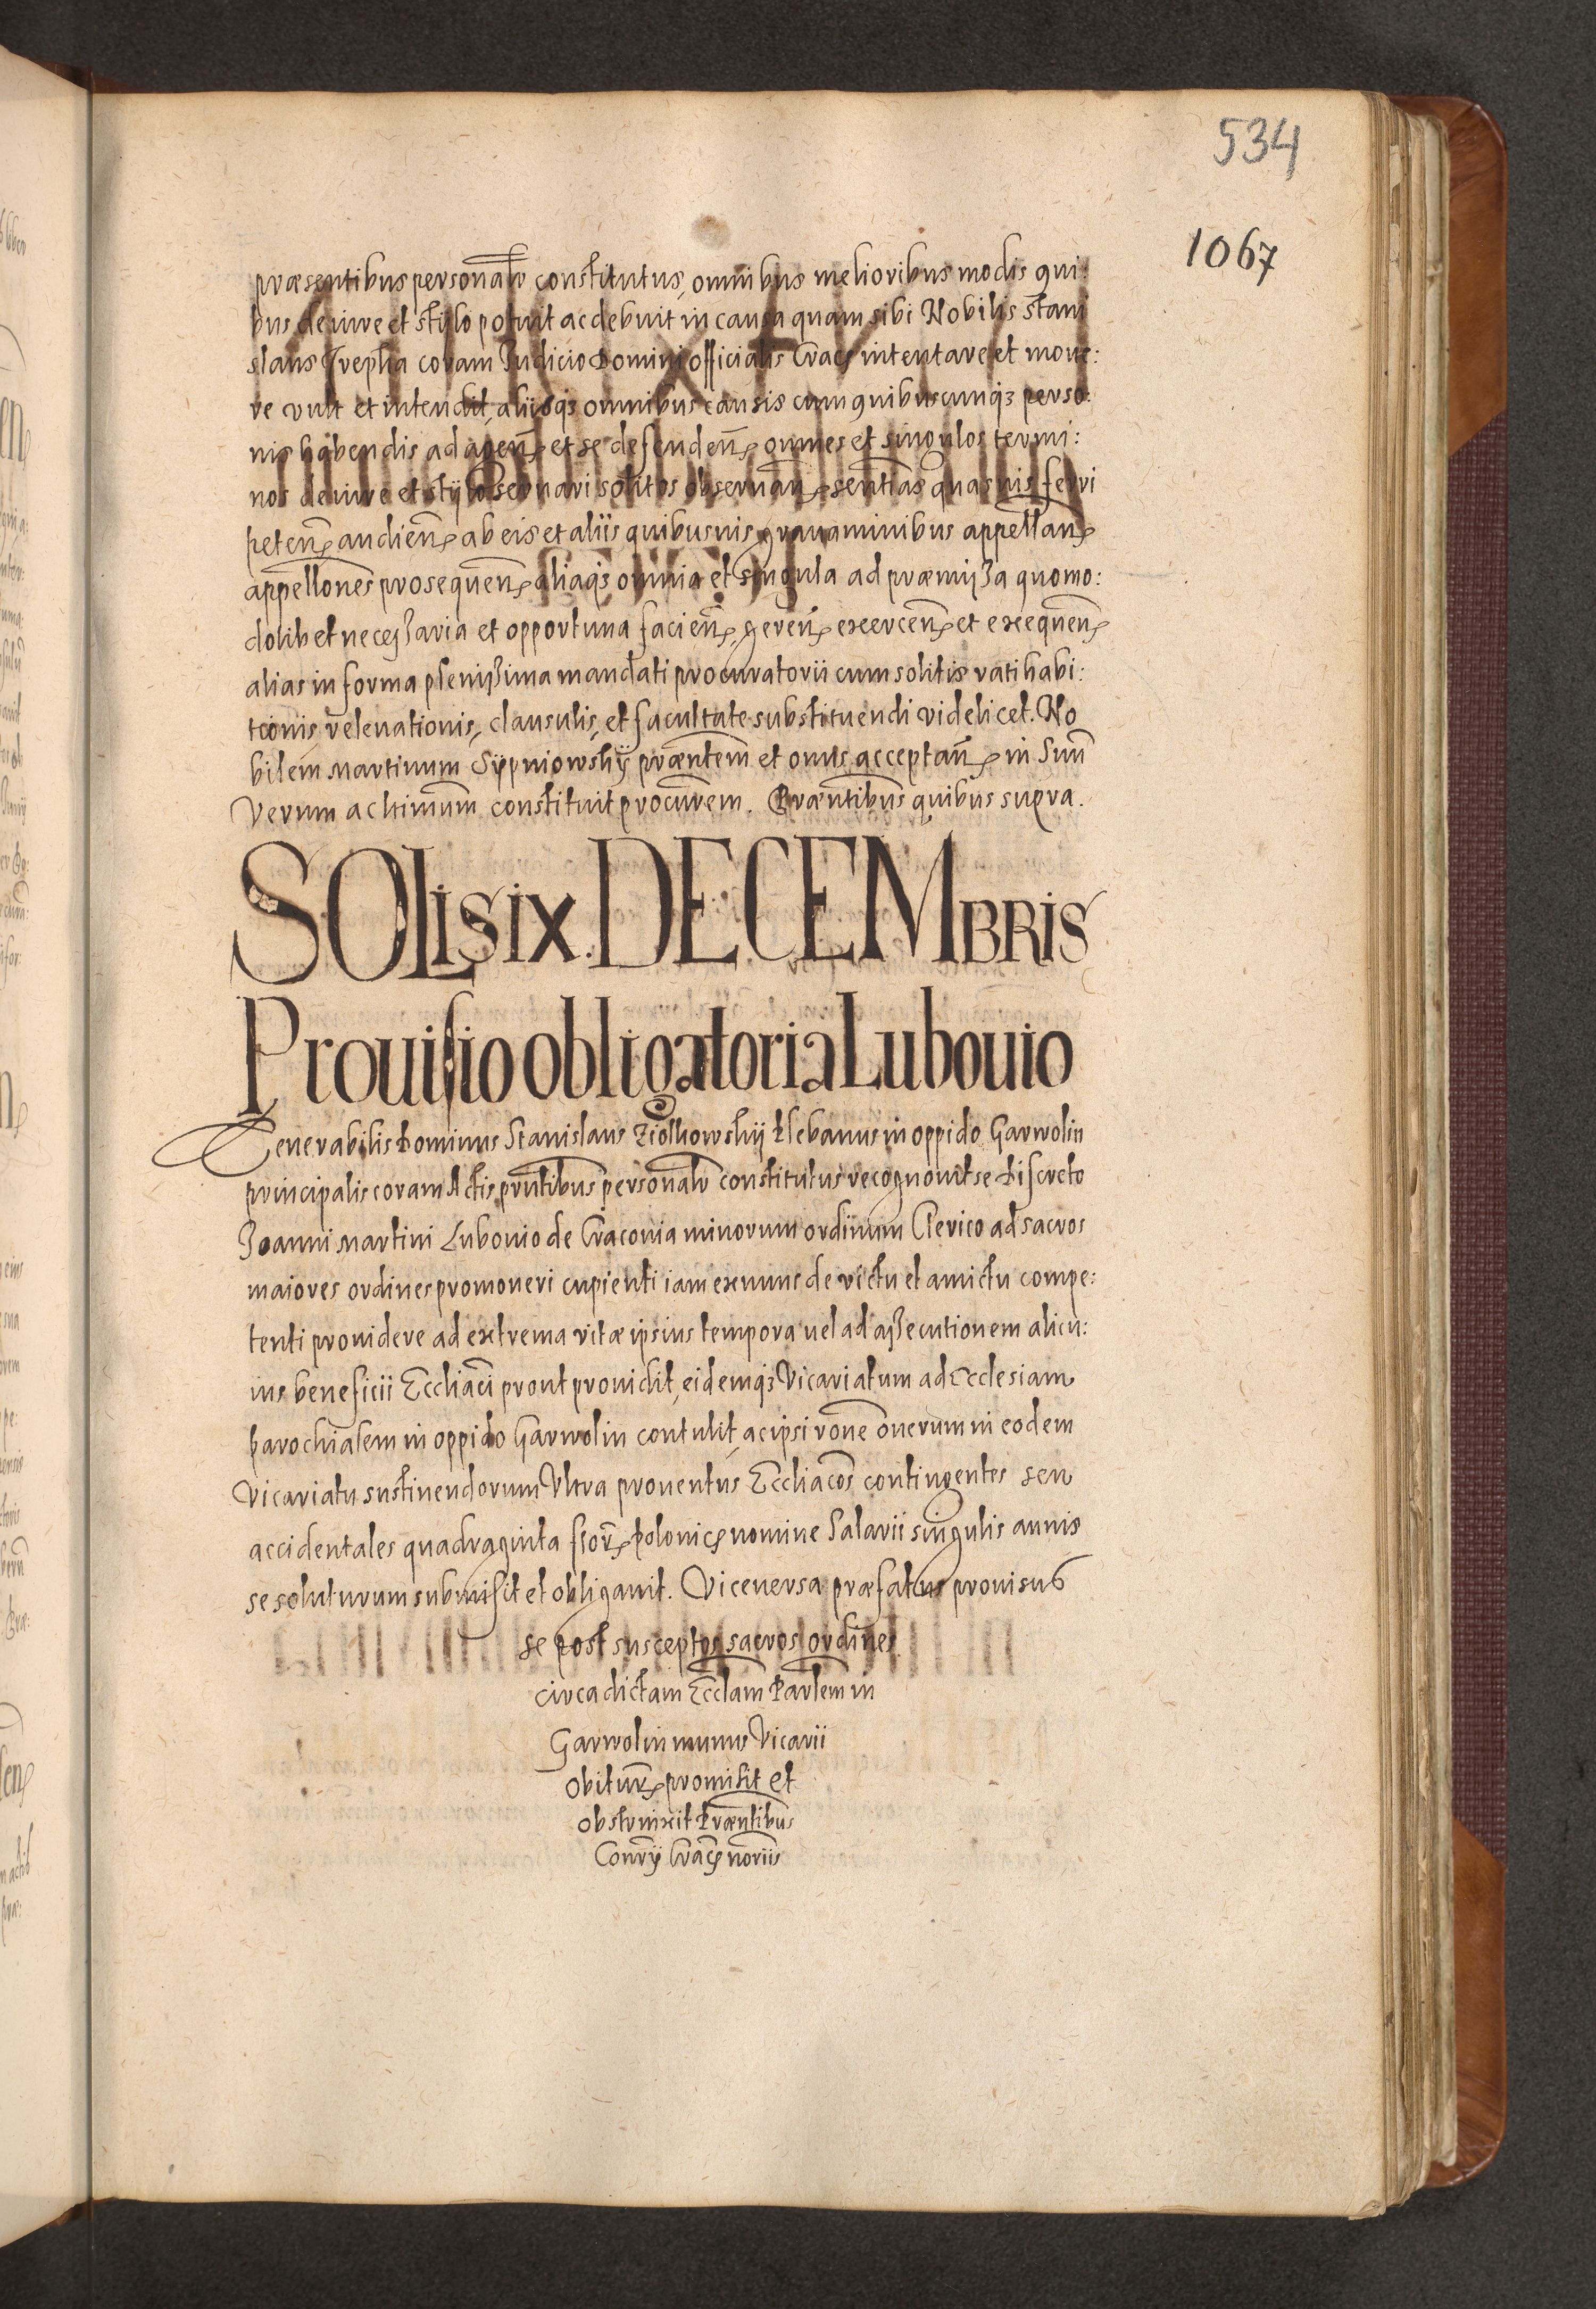 534
1067
præsentibus personalr constitutus, omnibus melioribus modis qui:
bus de iure et stylo potuit ac debuit in causa quam sibi Nobilis Stani
slaus Trepka coram Iudicio Domini officialis Crac intentare et moue:
re vult et intendit, aliisq3 omnibus causis cum quibuscunq3 perso:
nis habendis ad agen et se defenden omnes et singulos termi:
nos de iure et stylo seruari solitos obseruan sentias quasuis ferri
peten audien ab eis et aliis quibusuis grauaminibus appellan
appellones prosequen aliaq3 omnia et singula ad præmissa quomo:
dolibet necessaria et opportuna facien, geren exercen et exequen
alias in forma plenissima mandati procuratorii cum solitis ratihabi:
tionis, releuationis, clausulis, et facultate substituendi videlicet. No
bilem Martinum Sypniowskÿ præntem et onus acceptan in Suu
Verum ac ltimum constituit procurem. Præntibus quibus supra.
SOLIS IX. DECEMBRIS
Prouisio obligatoria Lubouio
Venerabilis Dominus Stanislaus Ziolkowskÿ Plebanus in oppido Garwolin
principalis coram Actis prntibus personalr constitutus recognouit se Discreto
Joanni Martini Lubouio de Cracouia minorum ordinum Clerico ad sacros
maiores ordines promoueri cupienti iam ex nunc de victu et amictu compe:
tenti prouidere ad extrema vitæ ipsius tempora uel ad assecutionem alicu:
ius beneficii Eccliaci prout prouidit, eidemq3 Vicariatum ad Ecclesiam
parochialem in oppido Garwolin contulit, ac ipsi rone onerum in eodem
Vicariatu sustinendorum Vltra prouentus Eccliacos contingentes seu
accidentales quadraginta flor Polonic nomine Salarii singulis annis
se soluturum submisit et obligauit. Viceuersa præfatus prouisus
se post susceptos sacros ordines
circa dictam Ecclam Parlem in
Garwolin munus Vicarii
obitur promisit et
obstrinxit Præntibus
Conrÿ Crac noriis